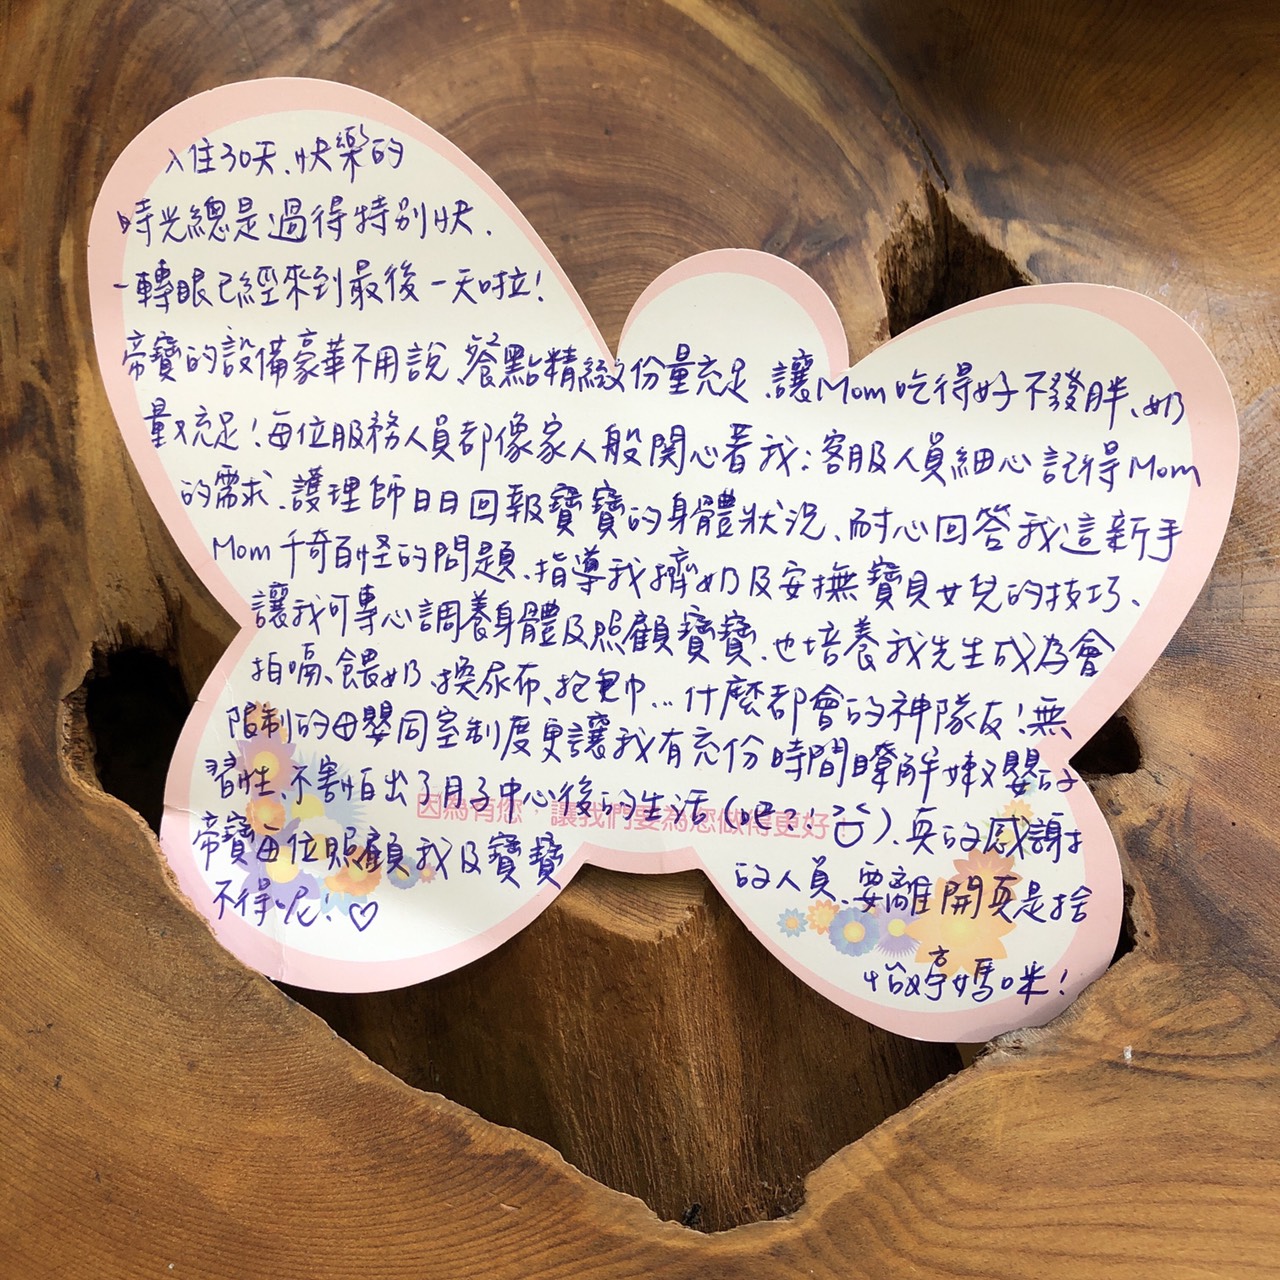 入住30天、快樂的
時光總是過得特別快.
一轉眼已經來到最後一天啦!
帝寶的設備豪華不用說、餐點精緻份量充足、讓Mom吃得好不發胖、奶
量又充足!每位服務人員都像家人般関心着我:客服人員細心記得Mom
的需求、護理師日日回報寶寶的身體狀況、耐心回答我這新手
Mom千奇百怪的問題、指導我擠奶及安撫寶貝女兒的技巧、
讓我可專心調養身體及照顧寶寶、也培養我先生成為會
拍嗝、餵奶、換尿布、包巾...什麼都會的神隊友!無
限制的母嬰同室制度更讓我有充份時間瞭解妹妹嬰的
習性、不害怕出了月子中心後的生活(吧?!).真的感謝
因為有您,讓我們要為您做得更好!
帝寶每位照顧我及寶寶的人員、要離開真是捨
不得呢!♡
婷媽咪!